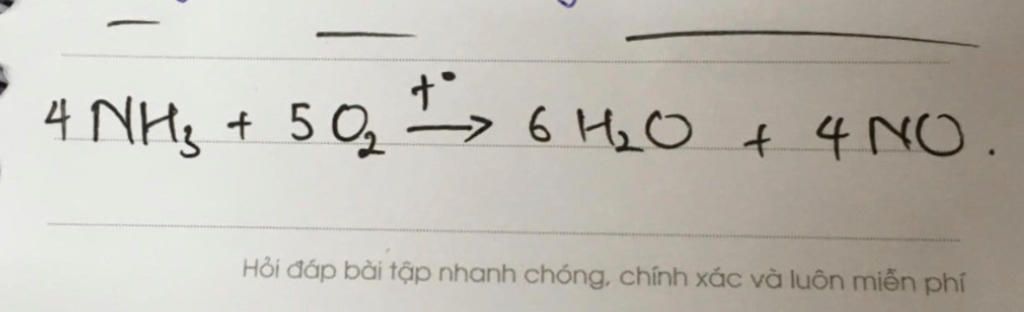 4 NH₃ + 5 O₂ t° → 6 H₂O + 4 NO.
Hỏi đáp bài tập nhanh chóng, chính xác và luôn miễn phí